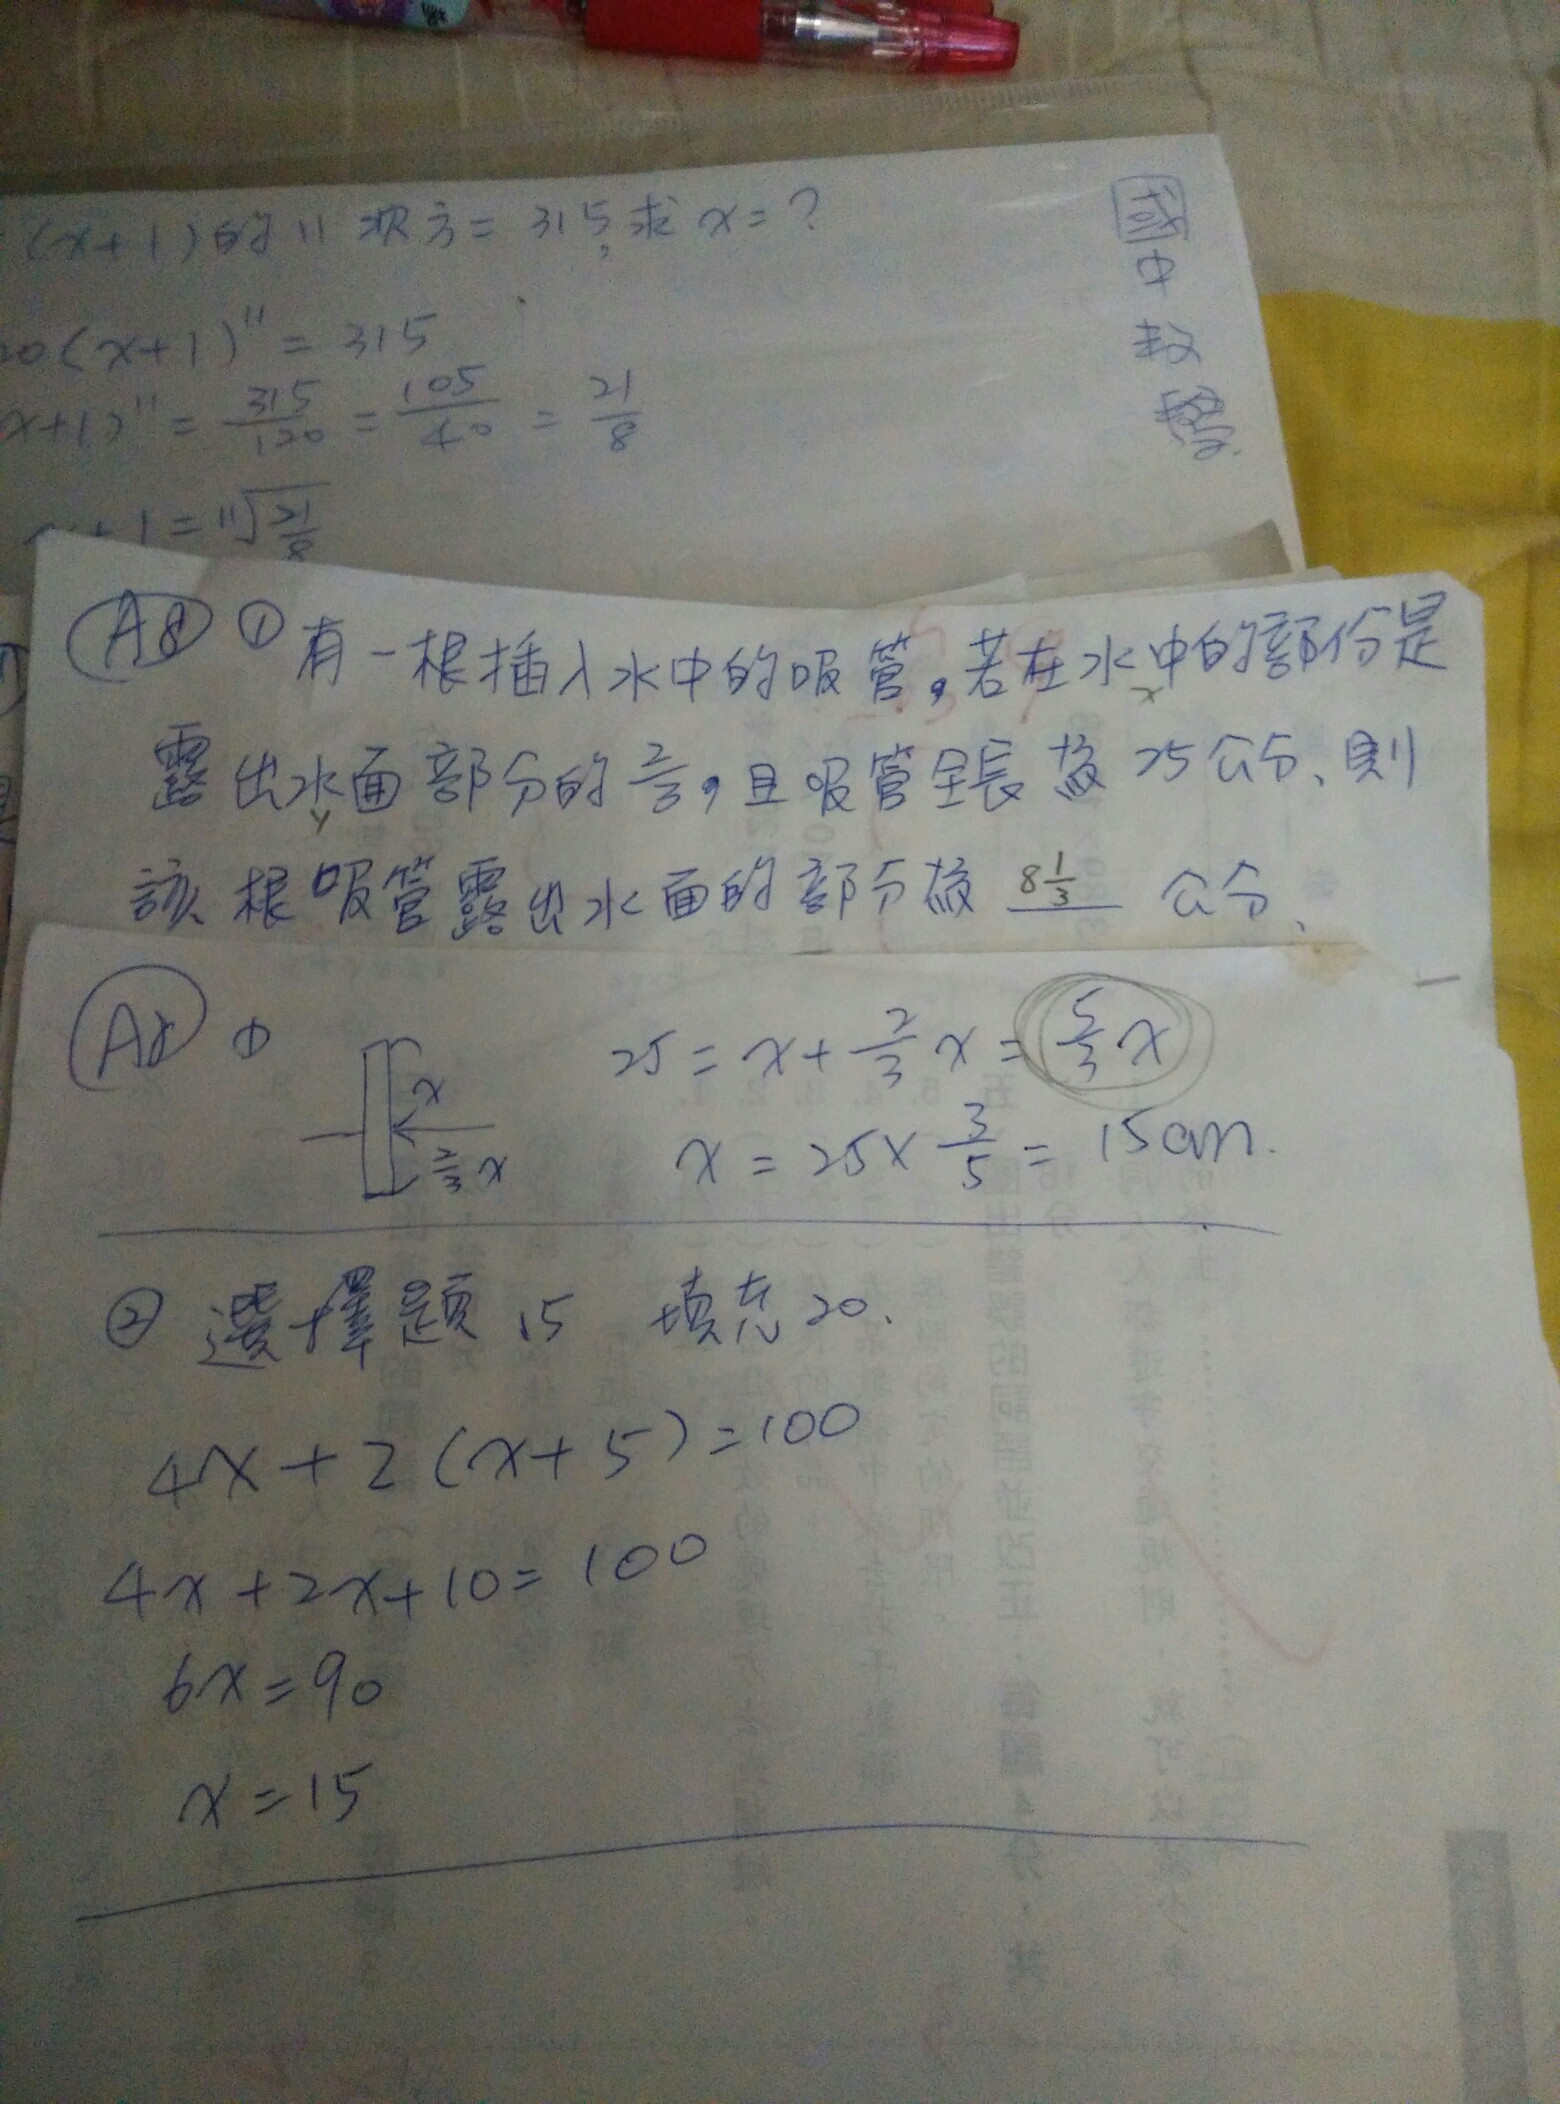 (x+1)的11次方=315求x=?
國中數學
20(x+1)¹¹=315
x+1)¹¹=315/120=105/40=21/8
+1=¹¹√21/8
A8 ① 有一根插入水中的吸管,若在水中的部份是
x
露出水面部分的2/3,且吸管全長為25公分、則
y
該根吸管露出水面的部分為 8 1/3 公分、
A8 ①
25=x+2/3x=5/3x
x
2/3x
x=25×3/5=15cm.
② 選擇題15 填充20.
4x+2(x+5)=100
4x+2x+10=100
6x=90
x=15